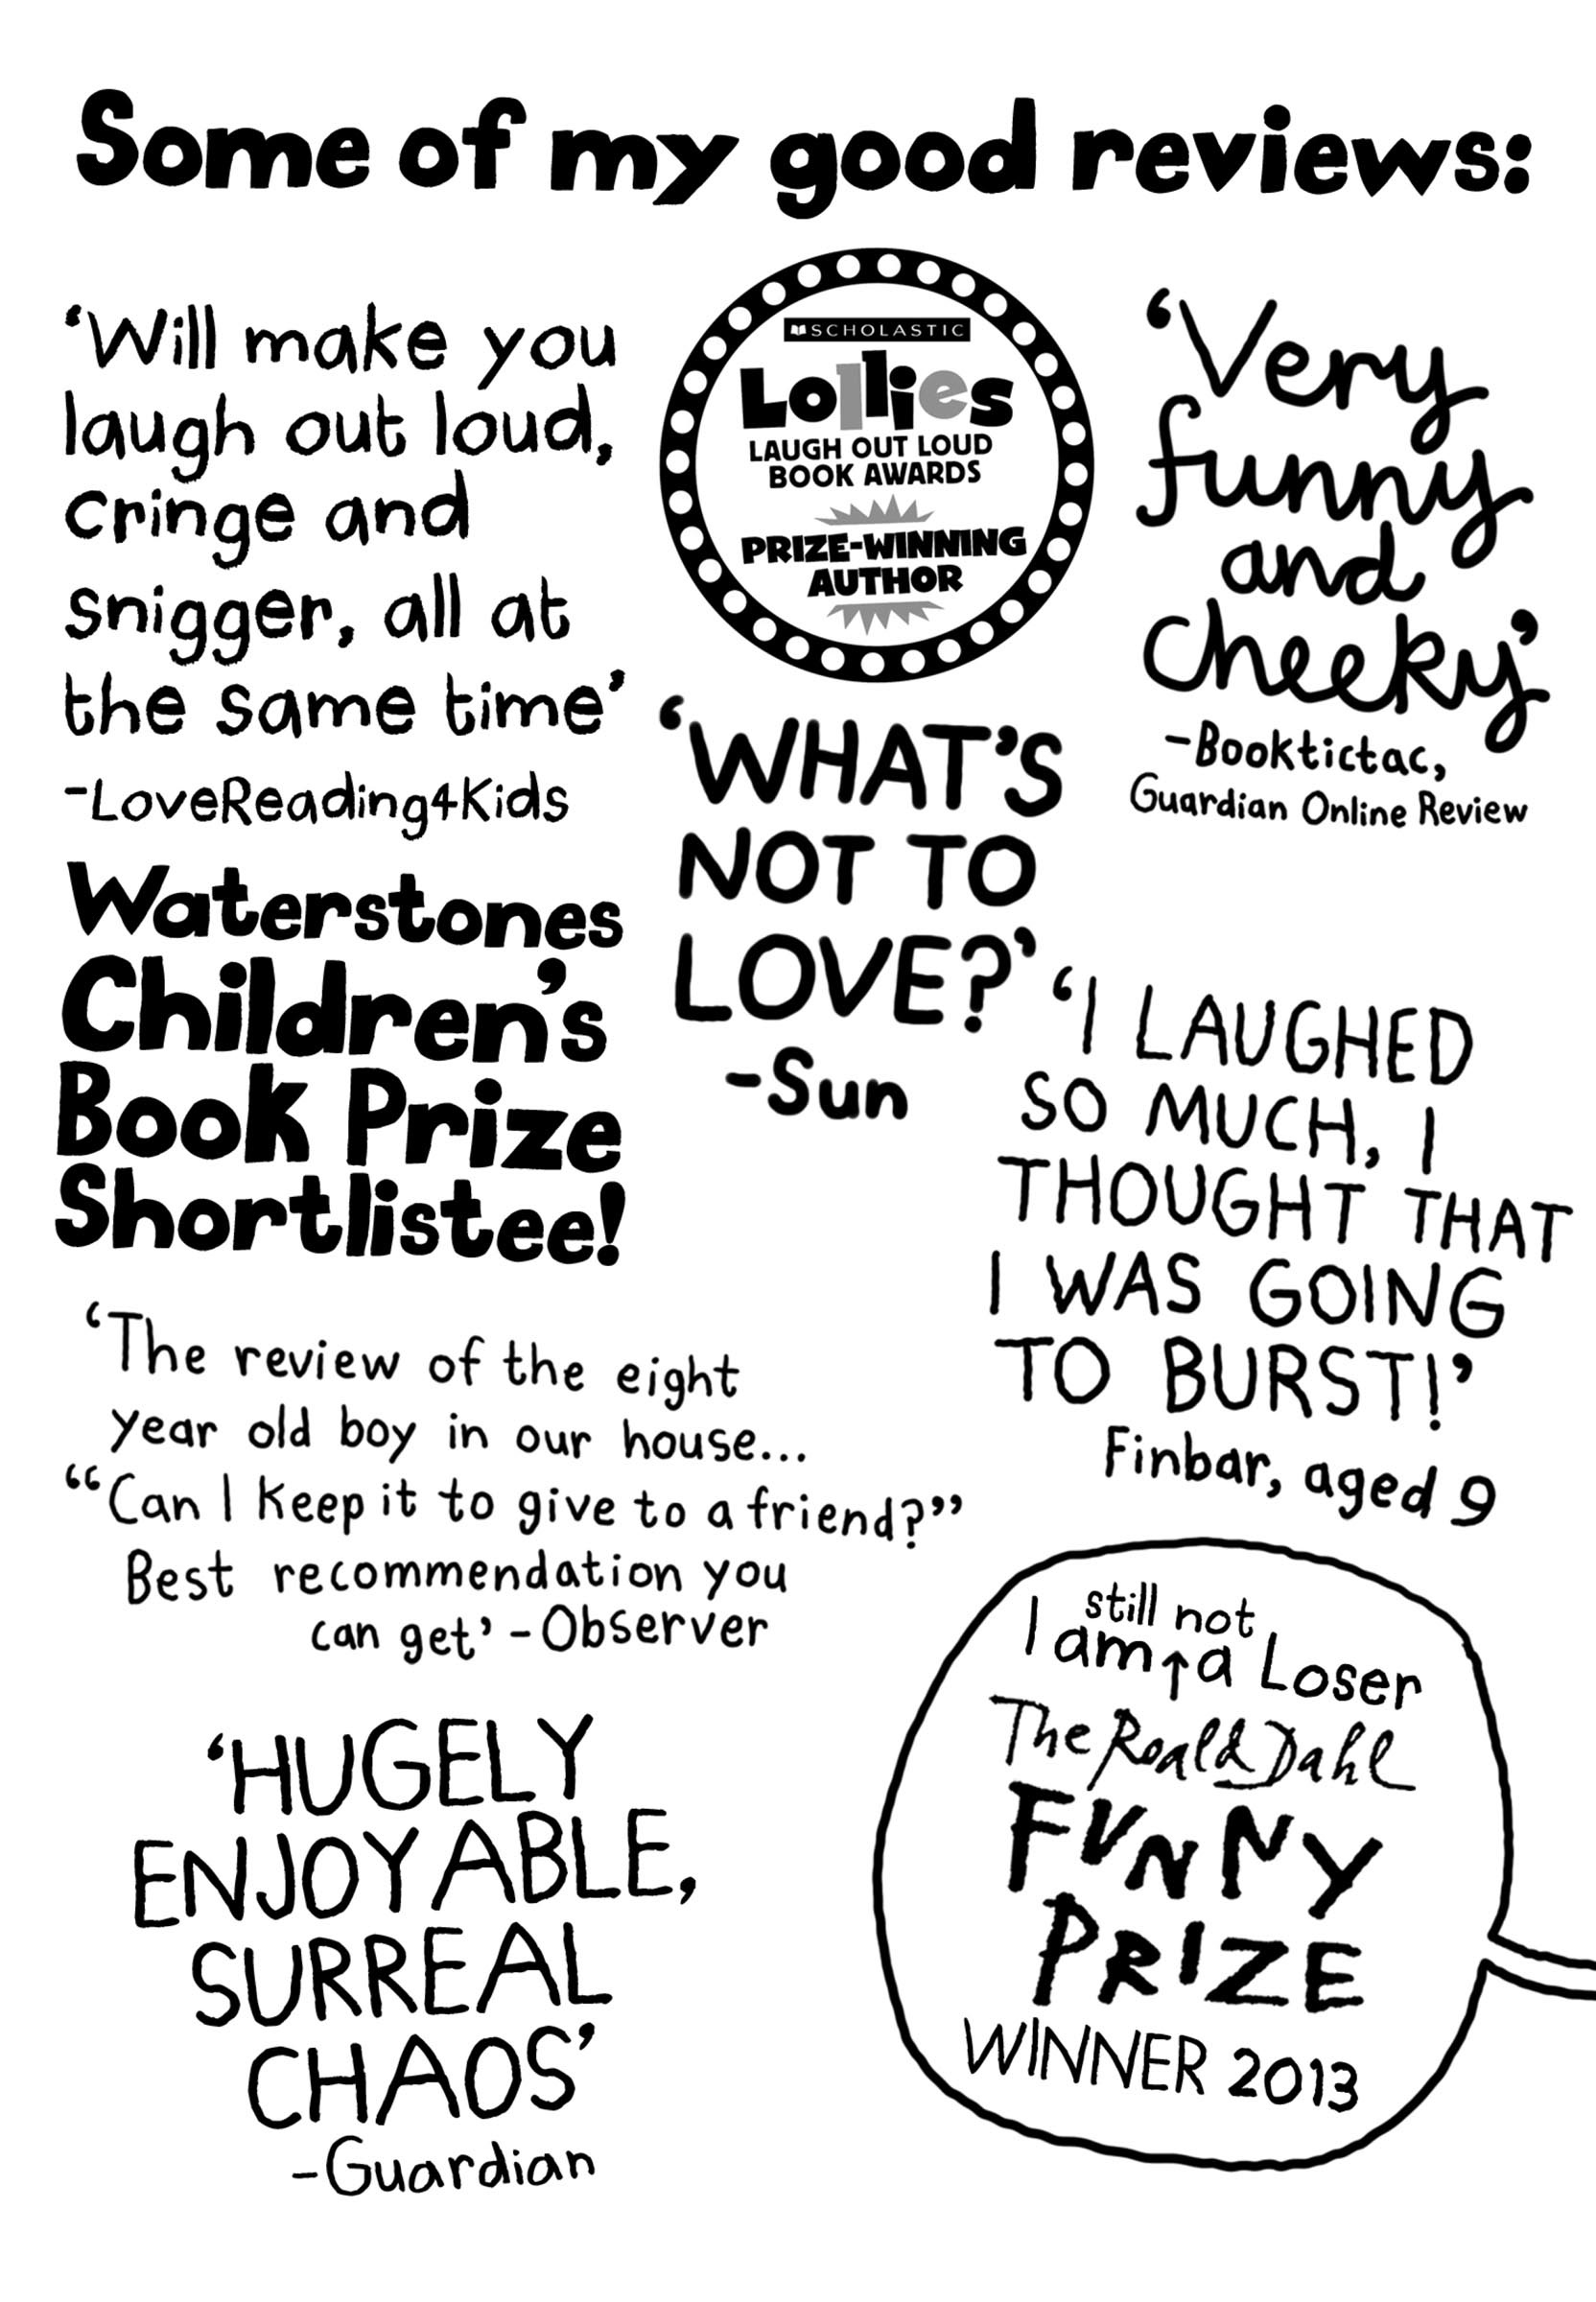 Some of my good reviews:
‘Will make you
laugh out loud,
cringe and
snigger, all at
the same time’
-LoveReading4Kids
SCHOLASTIC
Lollies
LAUGH OUT LOUD
BOOK AWARDS
PRIZE-WINNING
AUTHOR
‘Very
funny
and
cheeky’
-Booktictac,
Guardian Online Review
Waterstones
Children's
Book Prize
Shortlistee!
‘WHAT'S
NOT TO
LOVE?’
-Sun
‘I LAUGHED
SO MUCH, I
THOUGHT THAT
I WAS GOING
TO BURST!’
Finbar, aged 9
‘The review of the eight
year old boy in our house...
“Can I keep it to give to a friend?”
Best recommendation you
can get’ -Observer
‘HUGELY
ENJOYABLE,
SURREAL
CHAOS’
-Guardian
still not
I am ↑ a Loser
The Roald Dahl
FUNNY
PRIZE
WINNER 2013